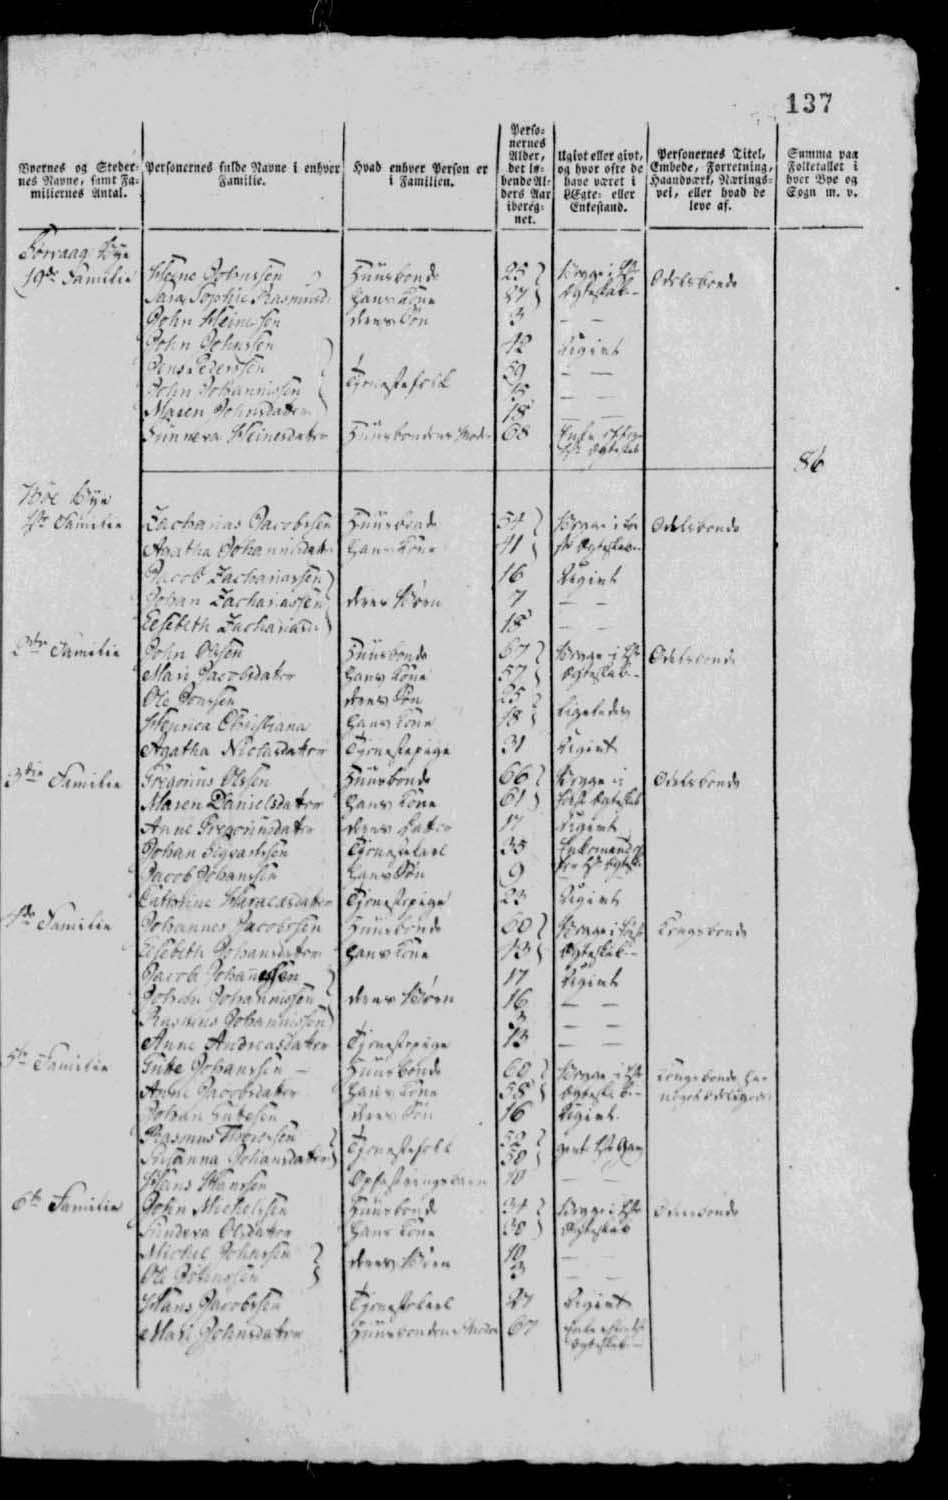 137
Byernes og Steder-
nes Navne, samt Fa-
miliernes Antal.
Personernes fulde Navne i enhver
Familie.
Hvad enhver Person er
i Familien.
Perso-
nernes
Alder,
det lø-
bende Al-
ders Aar
ibereg-
net.
Ugivt eller givt,
og hvor ofte de
have været i
Ægte- eller
Enkestand.
Personernes Titel,
Embede, Forretning,
Haandværk, Nærings-
vei, eller hvad de
leve af.
Summa paa
Folketallet i
hver Bye og
Sogn m. v.
Sørvaag Bye
19de Familie Heine Johnssen Huusbonde 25 Begge i Ægteskab Odelsbonde
Sara Sophie Rasmusd. hans Kone 27
John Heinessen deres Søn 3 — —
John Johnssen 42 Ugivt
Jens Pederssen Tjenestefolk 59 — —
John Johannissen 15 — —
Maren Johnsdatter 18 — —
Sunneva Heinesdatter Huusbondens Moder 68 Enke
86
Bøe Bye
1ste Familie Zacharias Jacobssen Huusbonde 54 Begge i Ægteskab Odelsbonde
Agatha Johannisdatter hans Kone 41
Jacob Zachariassen 16 Ugivt
Johan Zachariassen deres Børn 7 — —
Elsebeth Zachariasd. 18 — —
2den Familie John Olssen Huusbonde 67 Begge i Ægteskab Odelsbonde
Mari Jacobsdatter hans Kone 57
Ole Jonssen deres Søn 25 ligeledes
Henrica Christiana hans Kone 18
Agatha Niclasdatter Tjenestepige 31 Ugivt
3die Familie Gregorius Olssen Huusbonde 66 Begge i første Ægteskab Odelsbonde
Maren Danielsdatter hans Kone 61
Anne Gregoriusdatter deres Datter 17 Ugivt
Johan Sigvartssen Tjenestekarl 35 Enkemand
Jacob Johanssen hans Søn 9 —
Cathrine Haraldsdatter Tjenestepige 23 Ugivt
4de Familie Johannes Jacobssen Huusbonde 60 Begge i første Ægteskab Kongsbonde
Elsebeth Johansdatter hans Kone 43
Jacob Johannessen 17 Ugivt
Johan Johannissen deres Børn 16 — —
Rasmus Johannissen 3 — —
Anne Andreasdatter Tjenestepige 13 — —
5te Familie Gutte Johanssen Huusbonde 60 Begge i Ægteskab Kongsbonde
Anne Jacobsdatter hans Kone 58
Johan Guttesen deres Søn 16 Ugivt
Rasmus Thomessen Tjenestefolk 52
Susanna Johansdatter 50
Hans Hanssen Opfostringsbarn 10 — —
6te Familie John Michelssen Huusbonde 34 Begge i Ægteskab Odelsbonde
Sundeva Olsdatter hans Kone 30
Michel Johnssen deres Børn 10 — —
Ole Johnssen 3 — —
Hans Jacobssen Tjenestekarl 27 Ugivt
Mari Johnsdatter Huusbondens Moder 67 Enke